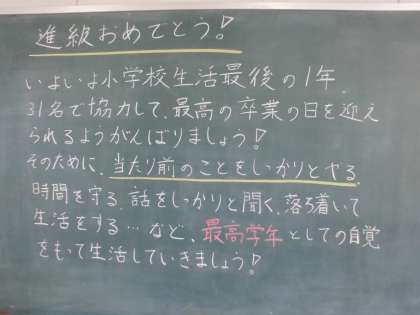 進級おめでとう!
いよいよ小学校生活最後の1年.
31名で協力して、最高の卒業の日を迎え
られるようがんばりましょう!
そのために、当たり前のことをしっかりとやる.
時間を守る、話をしっかりと聞く、落ち着いて
生活をする…など、最高学年としての自覚
をもって生活していきましょう!